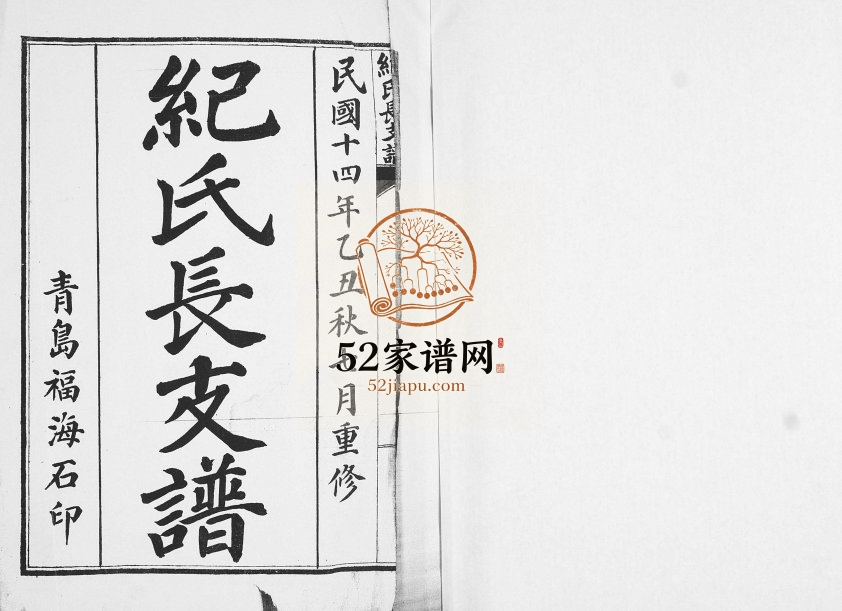 紀氏長支譜
民國十四年乙丑秋七月重修
紀氏長支譜
青島福海石印
52家谱网
52jiapu.com